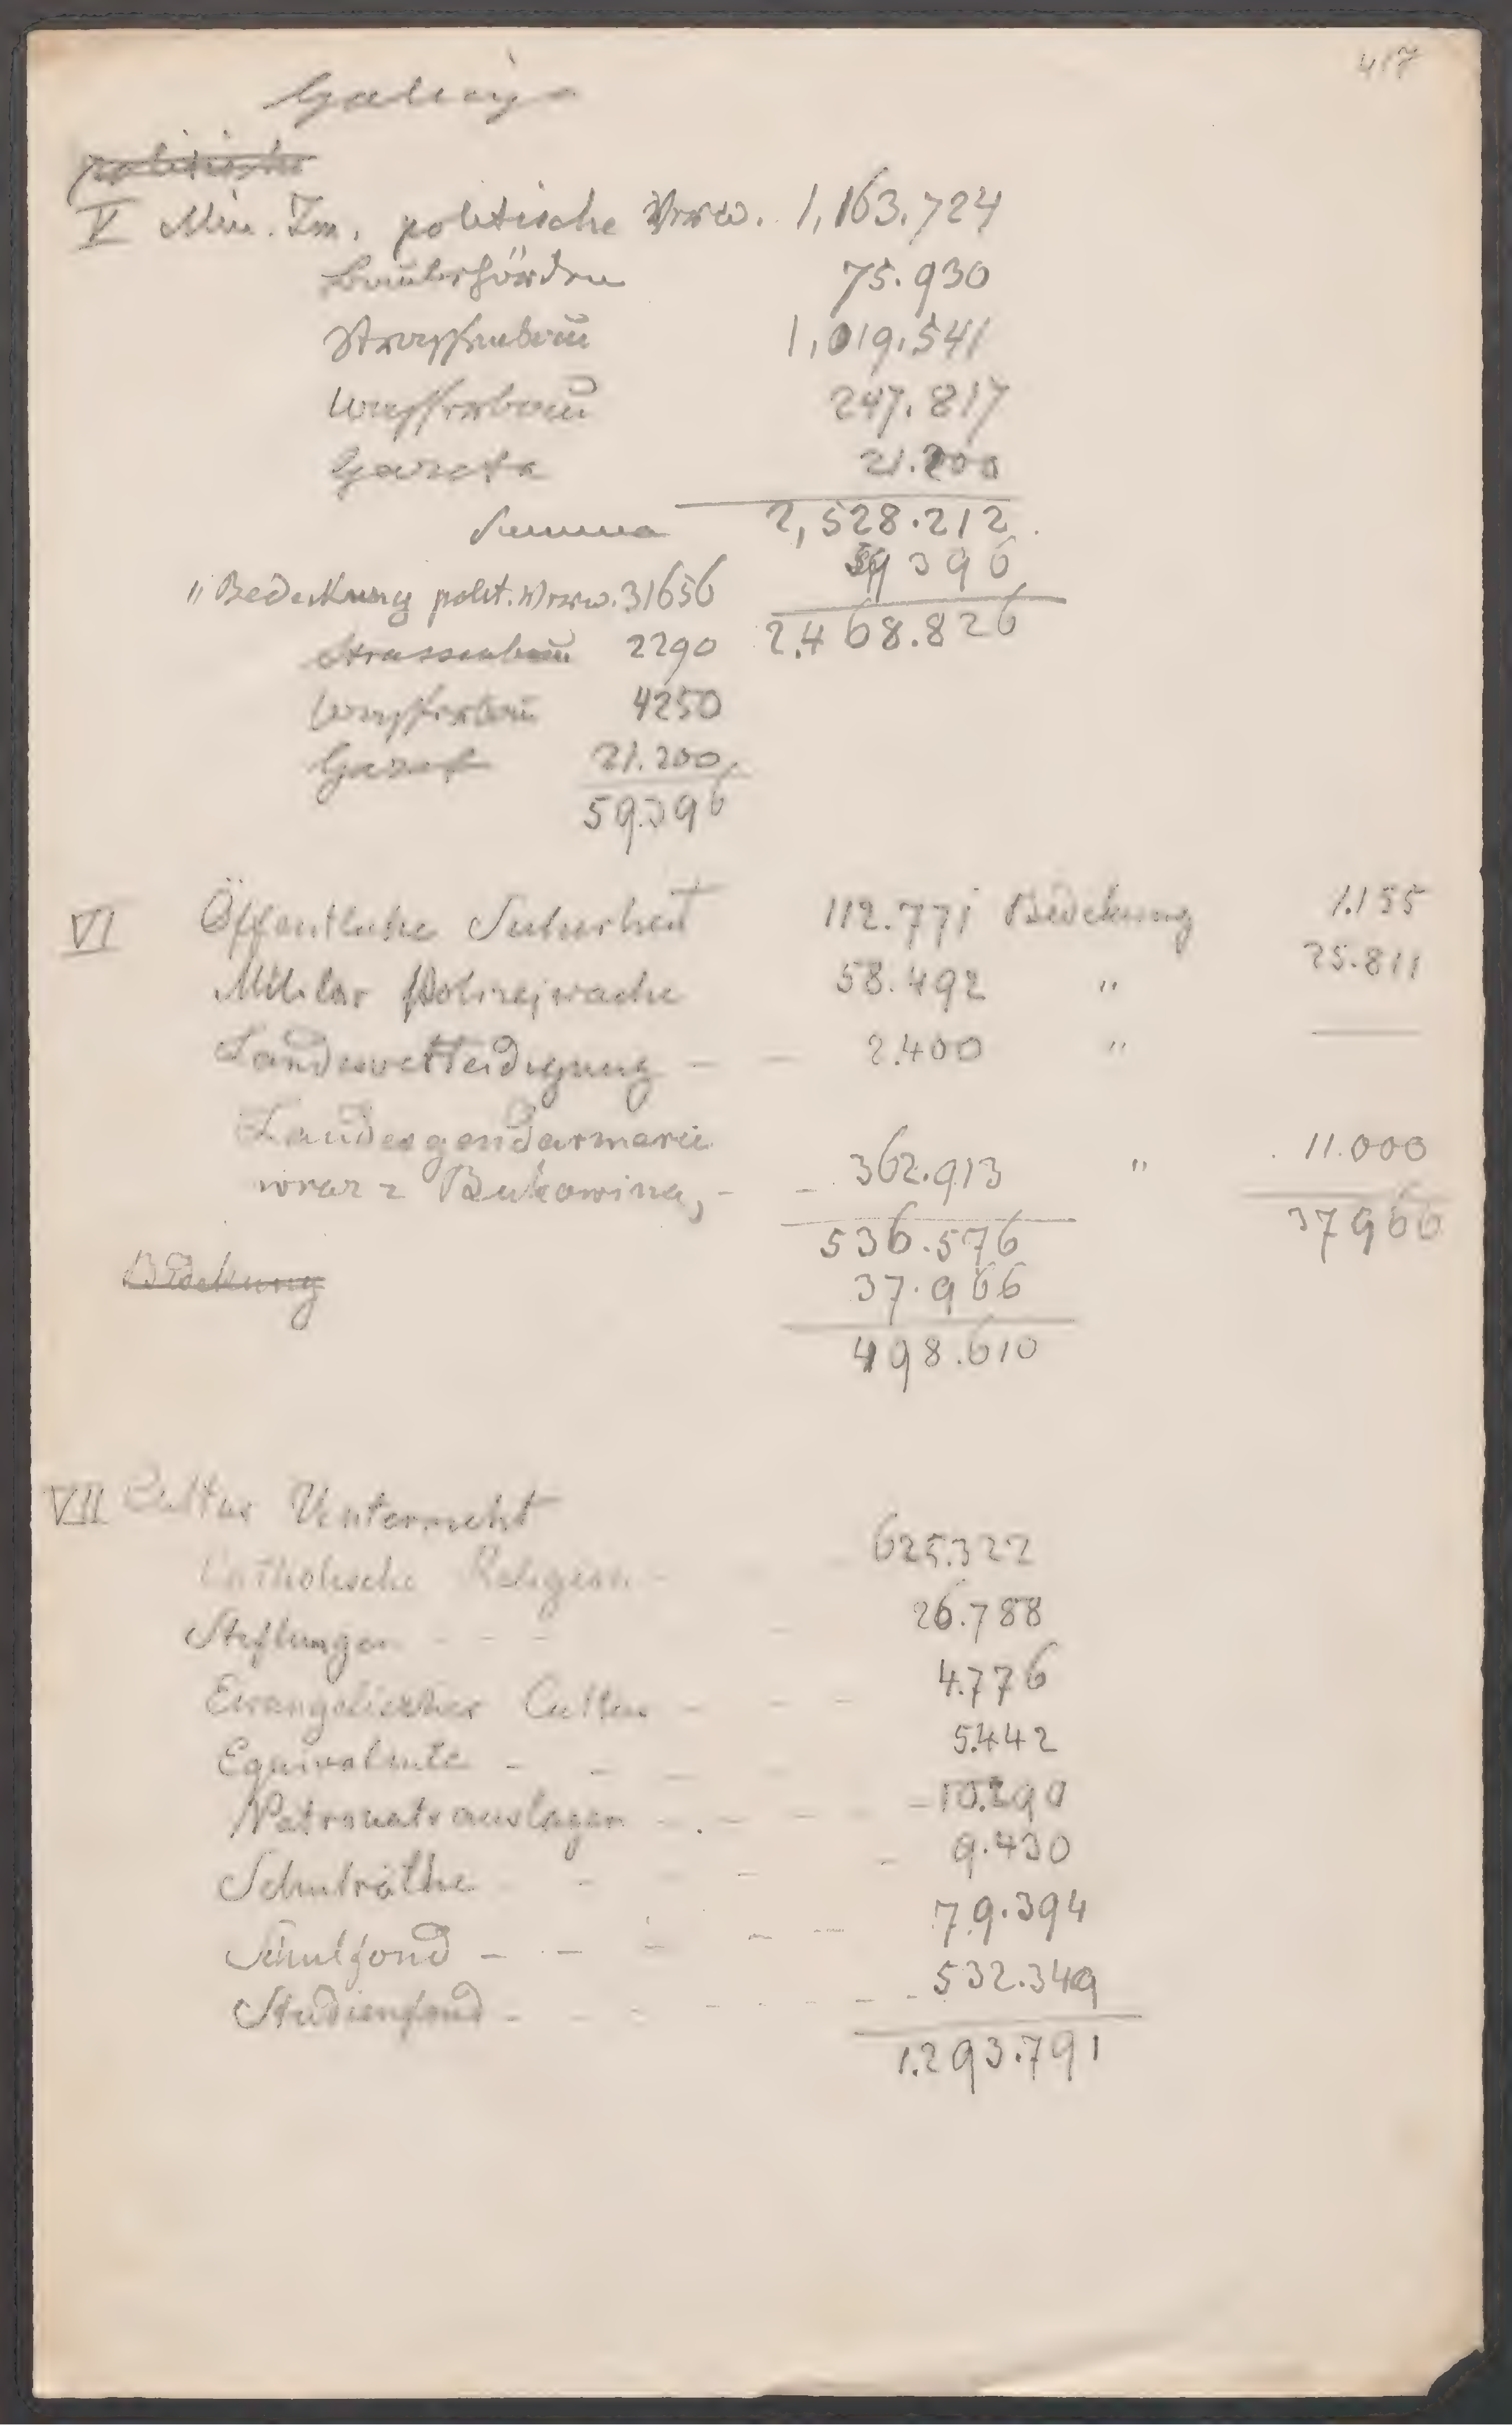 417
Galicja
politische
V Min. Inn. politische Verw. 1,163.724
Baubehörden 75.930
Strassenbau 1,019.541
Wasserbau 247.817
Gazeta 21.200
Summa 2,528.212
59396
"Bedeckung polit. Verw. 31656 2.468.826
Strassenbau 2290
Wasserbau 4250
Gazet 21.200
59.396
VI Öffentliche Sicherheit 112.771 Bedekung 1.155
Militär Polizeiwache 58.492 " 25.811
Landesvertheidigung — — 2.400 " —
Landesgendarmerie
wraz z Bukowina, - - 362.913 " 11.000
536.576 37966
Bedekung 37.966
498.610
VII Cultus Unterricht
Catholische Religion - 625.322
Stiftungen - - - - 26.788
Evangelischer Cultus - - - 4.776
Equivalente - - - - 5.442
Patronatsauslagen - - - - 10.290
Schulräthe - - - - 9.430
Schulfond - - - - - 79.394
Studienfond - - - - - - 532.349
1.293.791